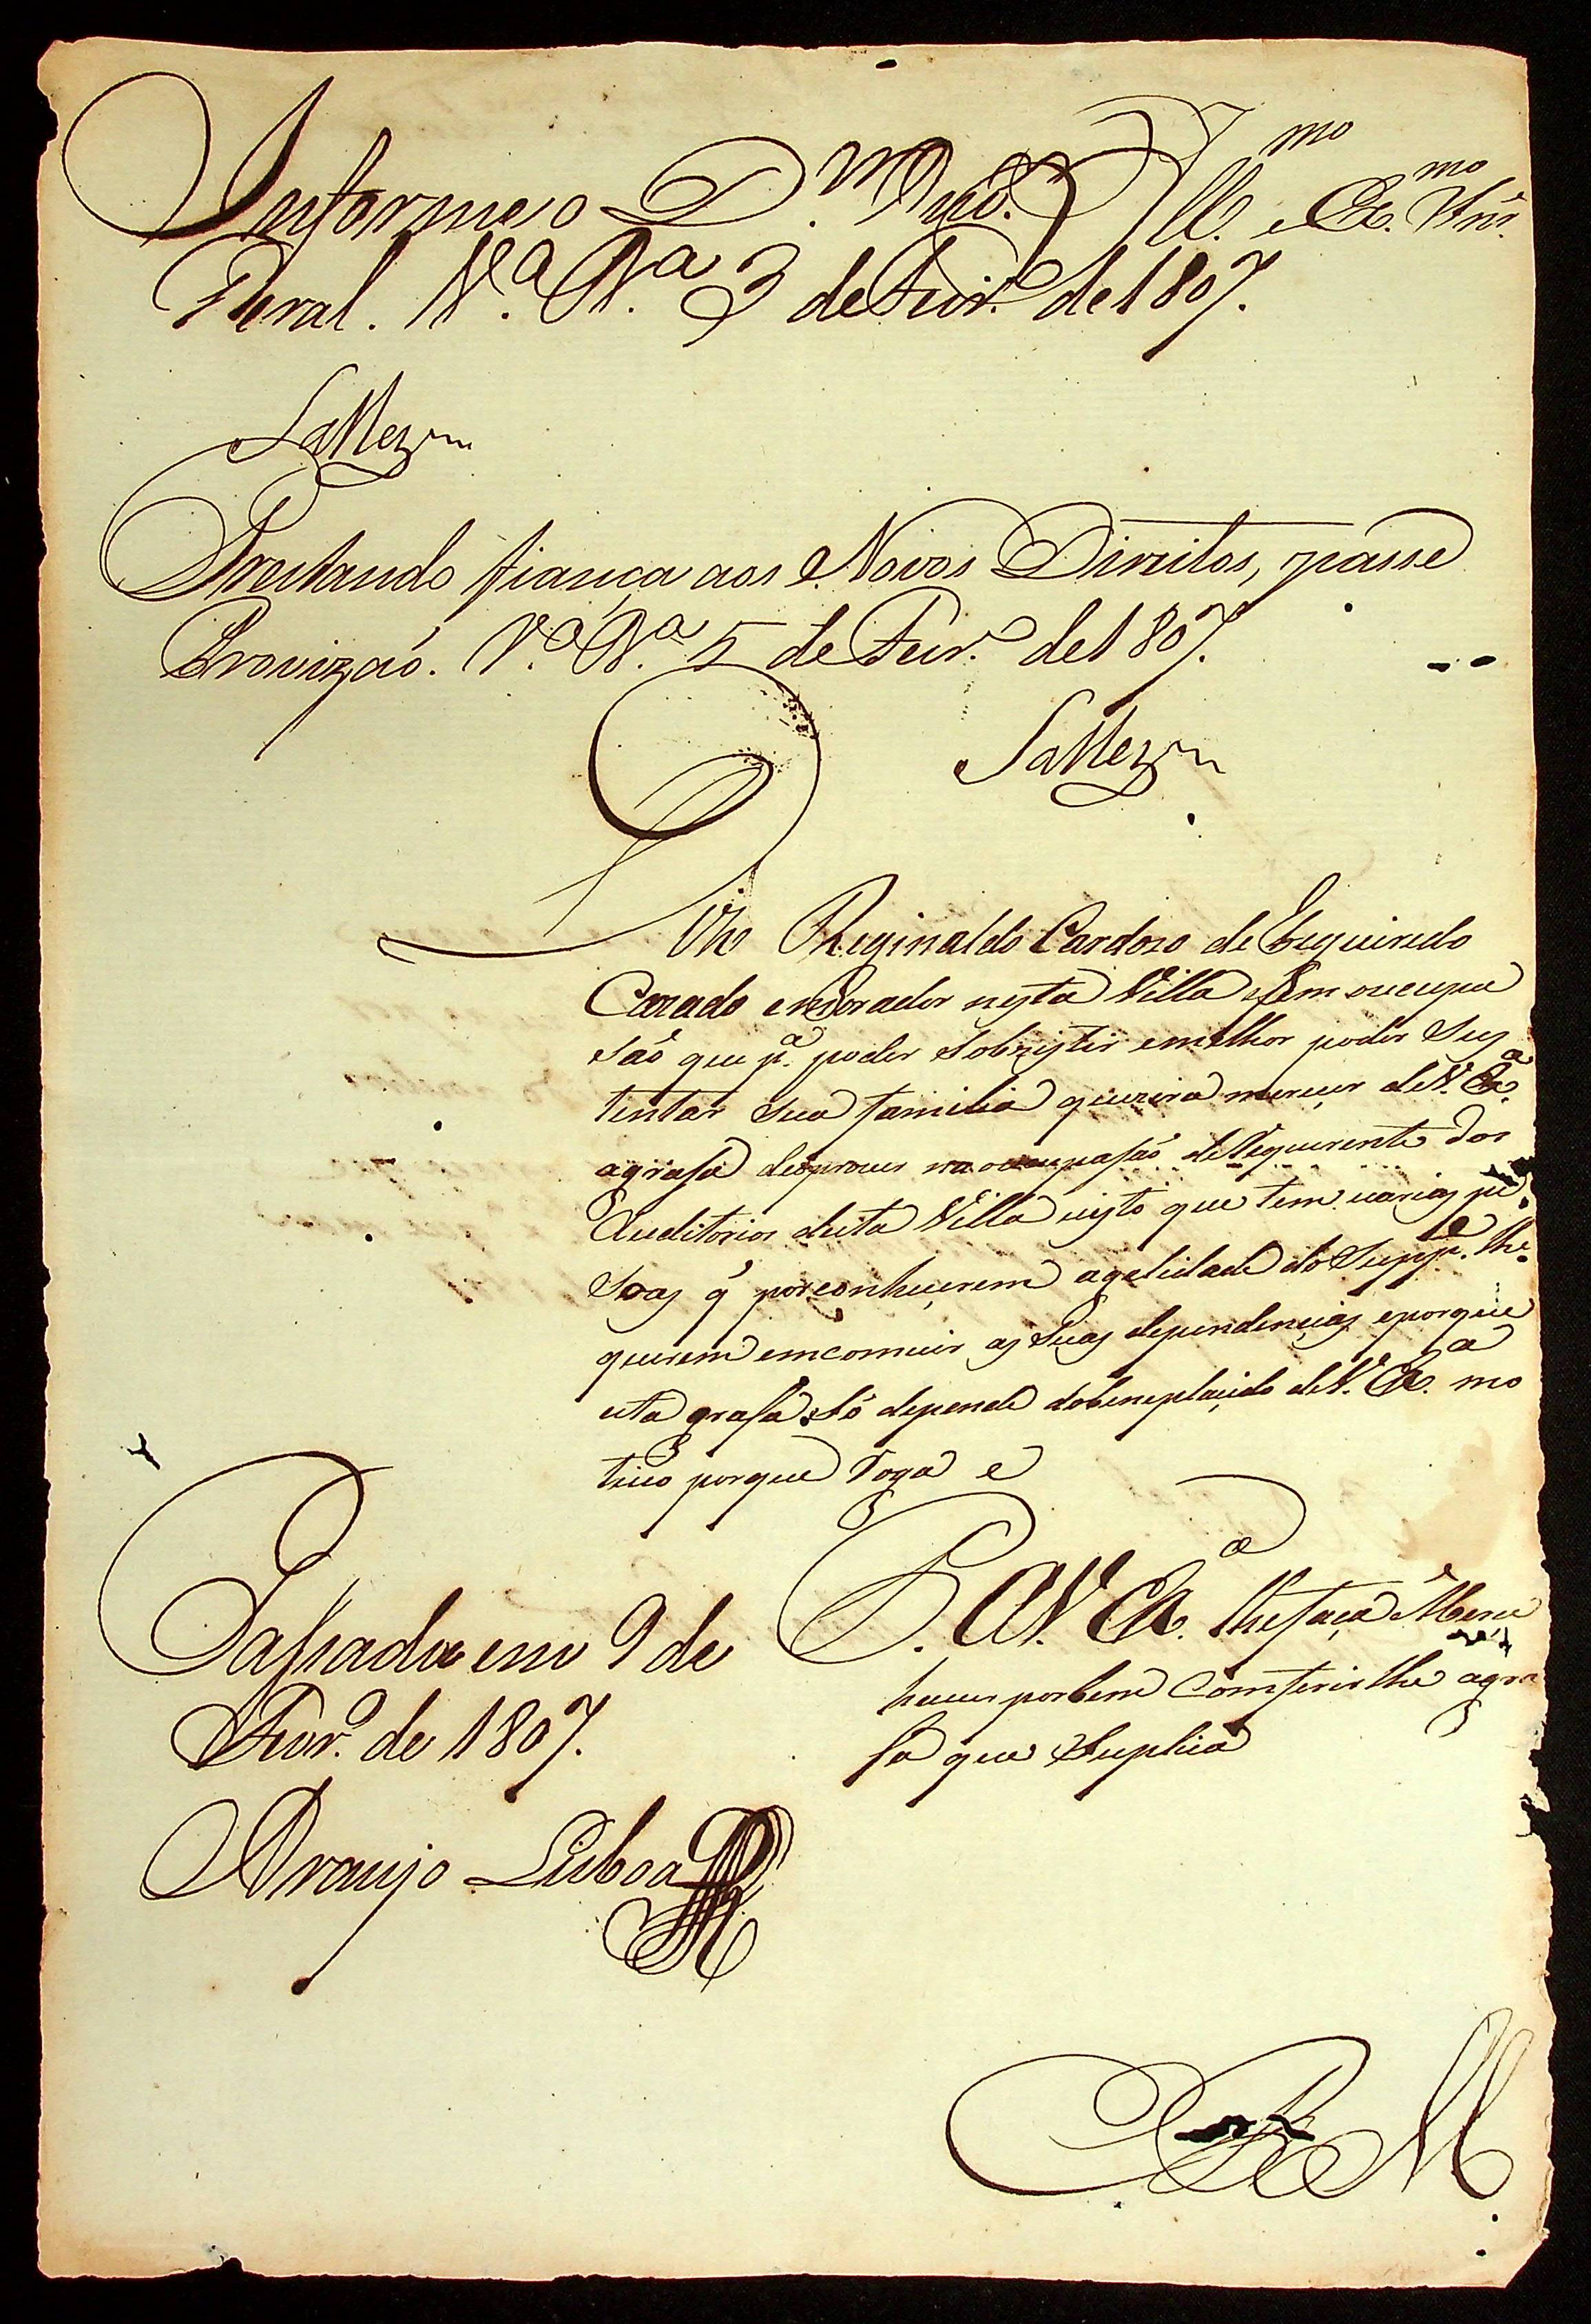 Informe o D.or Ouv.or Ill.mo e Ex.mo Snr.
Geral. V.a R.a 3 de Fevr.o de 1807.
Prestando fiança aos Novos Direitos, passe
Provizaõ. V.a R.a 5 de Fevr.o de 1807.
Diz Reginaldo Cardozo de Esqueiredo
Cazado e morador nesta Villa sem oucupa
saõ que p.a poder sobzistir e milhor poder sus
tentar sua familia queria mereçer de V. Ex.a
a grasa de oprouer na ocupasaõ de Requerente dos
Auditorios desta Villa visto que tem varias pe
soas q̃ por conheçerem a qelidade do Supp.e lhe
querem emcomuir as suas dependençias e porque
esta grasa só depende do beneplaçido de V. Ex.a mo
tivo porque Roga e
P. a V. Ex.a lhe faça Merce
haver por bem Comferir lhe a gra
sa que Suplica
Passada em 9 de
Fevr.o de 1807.
Araujo Lisboa
E R M